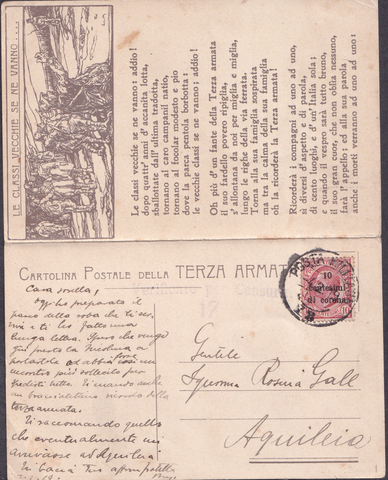 LE CLASSI VECCHIE SE NE VANNO....
Le classi vecchie se ne vanno: addio!
dopo quattr'anni d'accanita lotta,
sballottate dall'ultima tradotta,
tornano al caro campanil natio,
tornano al focolar modesto e pio
dove la parca pentola borbotta:
le vecchie classi se ne vanno; addio!
Oh più d'un fante della Terza armata
il suo fardello povero ripiglia,
s'allontana da voi per miglia e miglia,
lungo le righe della via ferrata.
Torna alla sua famiglia sospirata
ma tra la calma della sua famiglia
oh la ricorderà la Terza armata!
Ricorderà i compagni ad uno ad uno,
sì diversi d'aspetto e di parola,
di cento luoghi, e d'un'Italia sola;
e quando il vespro sarà tutto bruno,
il suo gran cuore, che non oblia nessuno,
farà l'appello; ed alla sua parola
anche i morti verranno ad uno ad uno!
CARTOLINA POSTALE DELLA TERZA ARMATA
POSTA
10
centesimi
di corona
Cara sorella,
Oggi ho preparato il
pacco della roba che ti ser-
e ti ho fatto una
lunga lettera. Spero che venga
qui presto la
portartela ed abbia così un
più sollecito per
spedirti tutto. Ti mando anche
un braccialettino ricordo della
terza armata.
Ti raccomando quello
che eventualmente mi
arrivasse ad Aquileia
Ti bacia tuo
Gentile
Signorina Rosina Gall
Aquileia